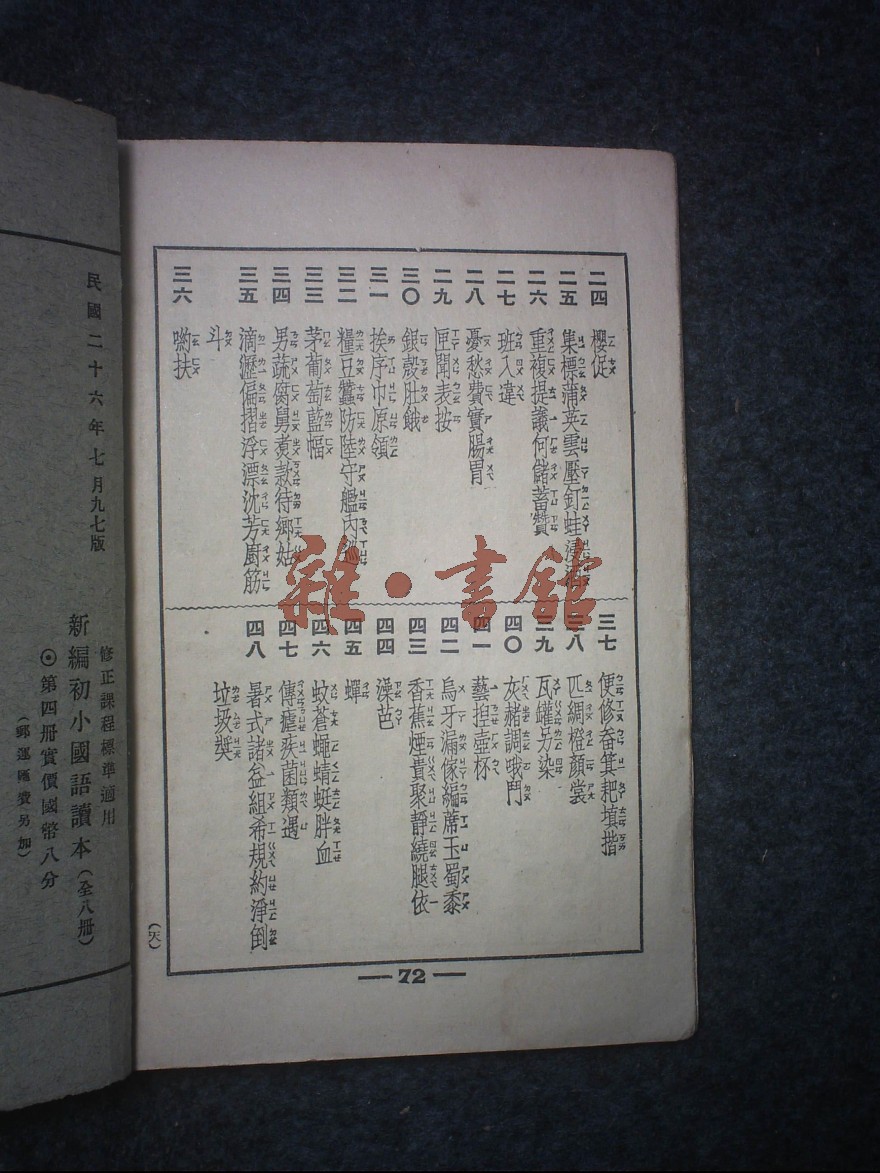 二四 櫻促
二五 集標蒲英雲壓釘蛙浸
二六 重複提議何儲蓄贊
二七 班入違
二八 憂愁費實腸胃
二九 匣聞表按
三〇 銀殼肚餓
三一 挨序巾原領
三二 糧豆蠶防陸守艦丙巡
三三 茅葡萄藍幅
三四 男蔬腐舅煮款待鄉姑
三五 滴瀝偏摺浮漂沈芳廚筋
斗
三六 喲扶
三七 便修畚箕耙墳揩
三八 匹綢橙顏裳
三九 瓦罐另染
四〇 灰赭調哦鬥
四一 藝揑壺杯
四二 烏牙漏傢編蓆玉蜀黍
四三 香蕉煙貴聚靜繞腿依
四四 澡芭
四五 蟬
四六 蚊蒼蠅蜻蜓胖血
四七 傳瘧疾菌類遇
四八 暑式諸盆組希規約淨倒
垃圾獎
72
民國二十六年七月九七版
修正課程標準適用
新編初小國語讀本（全八冊）
第四冊實價國幣八分
（郵運匯費另加）
雜·書館